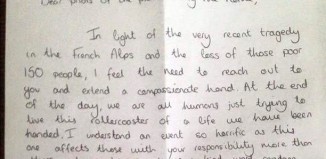 In light of the very recent tragedy
in the French Alps and the loss of those poor
150 people, I feel the need to reach out to
you and extend a compassionate hand. At the end
of the day, we are all humans just trying to
live this rollercoaster of a life we have been
handed. I understand an event so horrific as this
one affects those with your responsibility more than